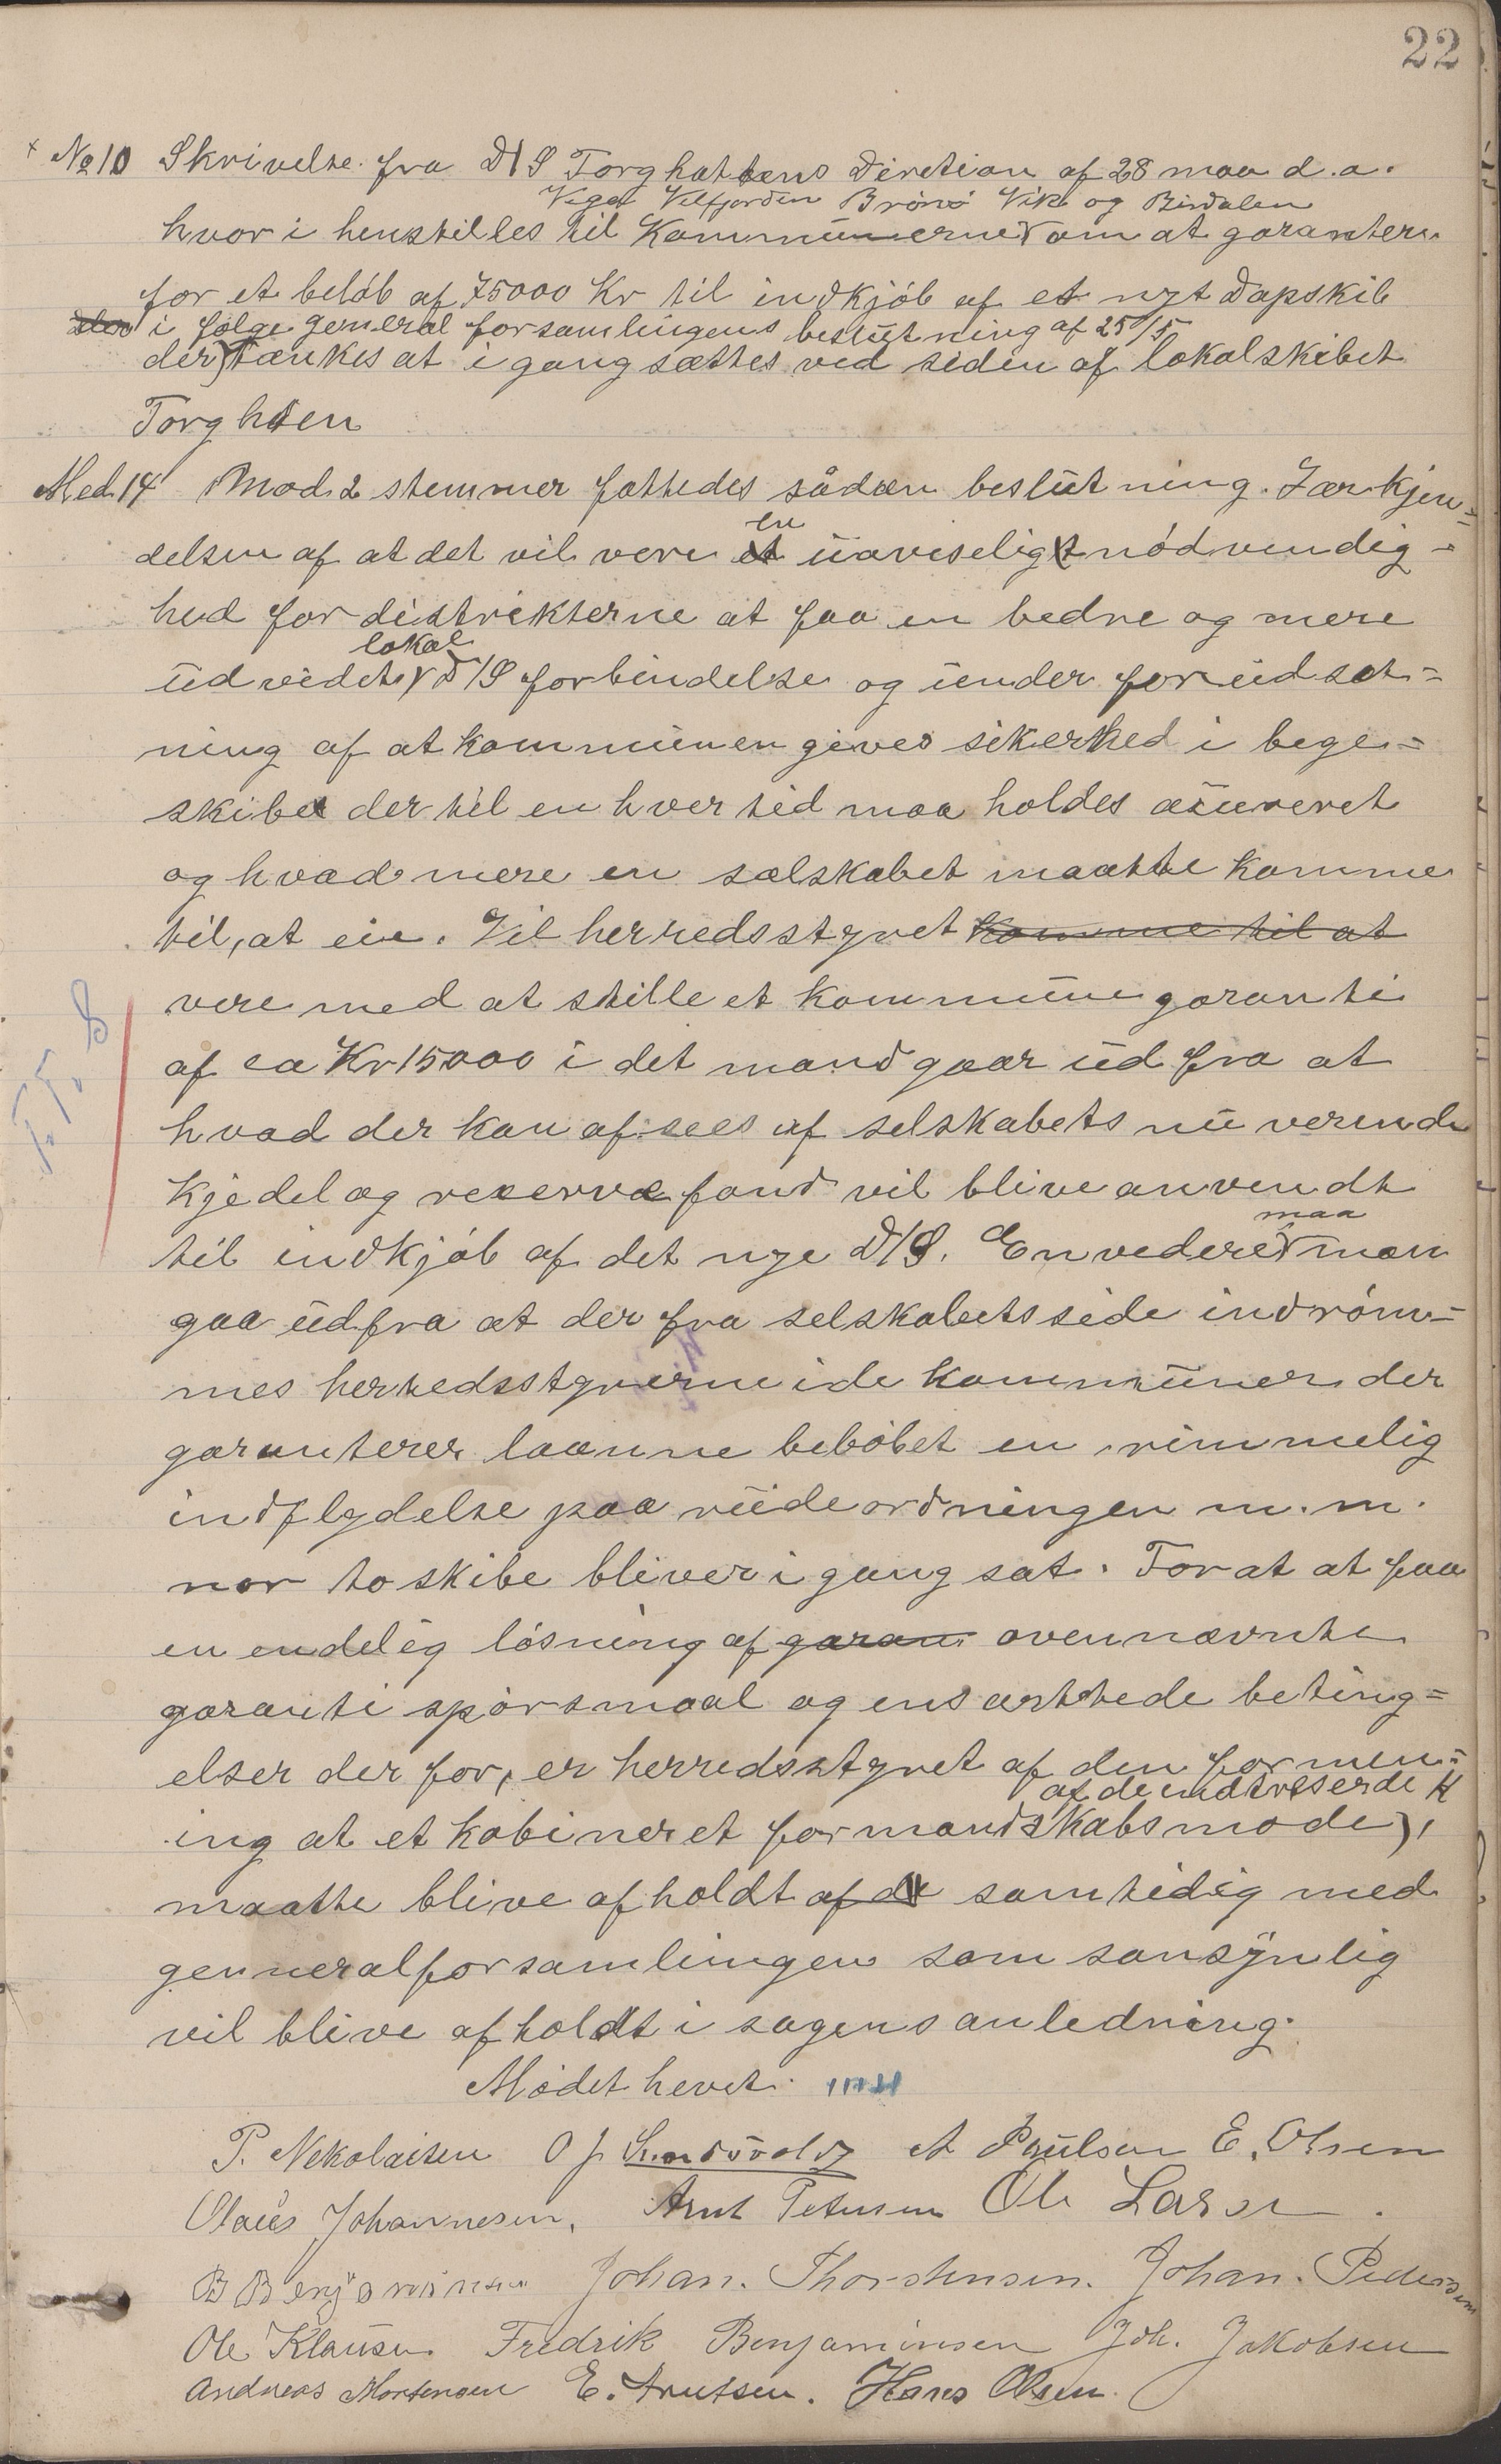 22
x No 10 Skrivelse fra D/S Torghattens Diretion af 28 maa d.a.
Vega Velfjorden Brönö Vik og Bindalen
hvor i henstilles til Kommunerne om at garantere
for et belöb af 75000 Kr til indkjöb af et nyt dapskib
i følge general forsamlingens beslutning af 25/5
der tænkes at i gang sættes ved siden af lokalskibet
Torghten
Med 14 Mod 2 stemmer fattedes sådan beslutning. I ærkjen=
en
delsen af at det vil vere et uaviselig nödvendig-
hed for distrikterne at faa en bedre og mere
lokal
udvidet D/S forbindelse og under forudset=
ning af at kommunen gives sikerhed i bege=
skibe der til en hver tid maa holdes asureret
og hvad mere en sælskabet maatte komme
til, at eie. Vil herredsstyret komme til at
vere med at stille et kommune garanti
af ca Kr 15000 i det mand gaar ud fra at
hvad der kan af sees af selskabets nu verende
kjedel og reserve fond vil blive anvendt
maa
til indkjöb af det nye D/S. En videre man
gaa ud fra at der fra selskabets side indröm=
mes herredsstyrerne i de kommuner der
garanterer laanne belöbet en rimmelig
indflydelse paa ruideordningen m.m.
nor to skibe bliver i gang sat. For at at faa
en endelig lösning af garan ovennævnte
garanti spörsmaal og ensartede beting=
elser der for, er herredsstyret af den formen=
af de indtreserde K
ing at et kobineret formandskabsmöde,
maatte blive afholdt af d samtidig med
genneralforsamlingen som sansynlig
vil blive afholdt i sagens anledning.
Mödet hevet.
P. Nekolaisen O J A Paulsen E. Olsen
Olaus Johannesen. Arnt Petersen Ole Larsen
B Benjaminsen Johan. Thorstensen. Johan. Pedersen
Ole Klausen Fredrik Benjaminsen Joh. Jakobsen
Andreas Mortensen E. Arntsen. Hans Olsen.